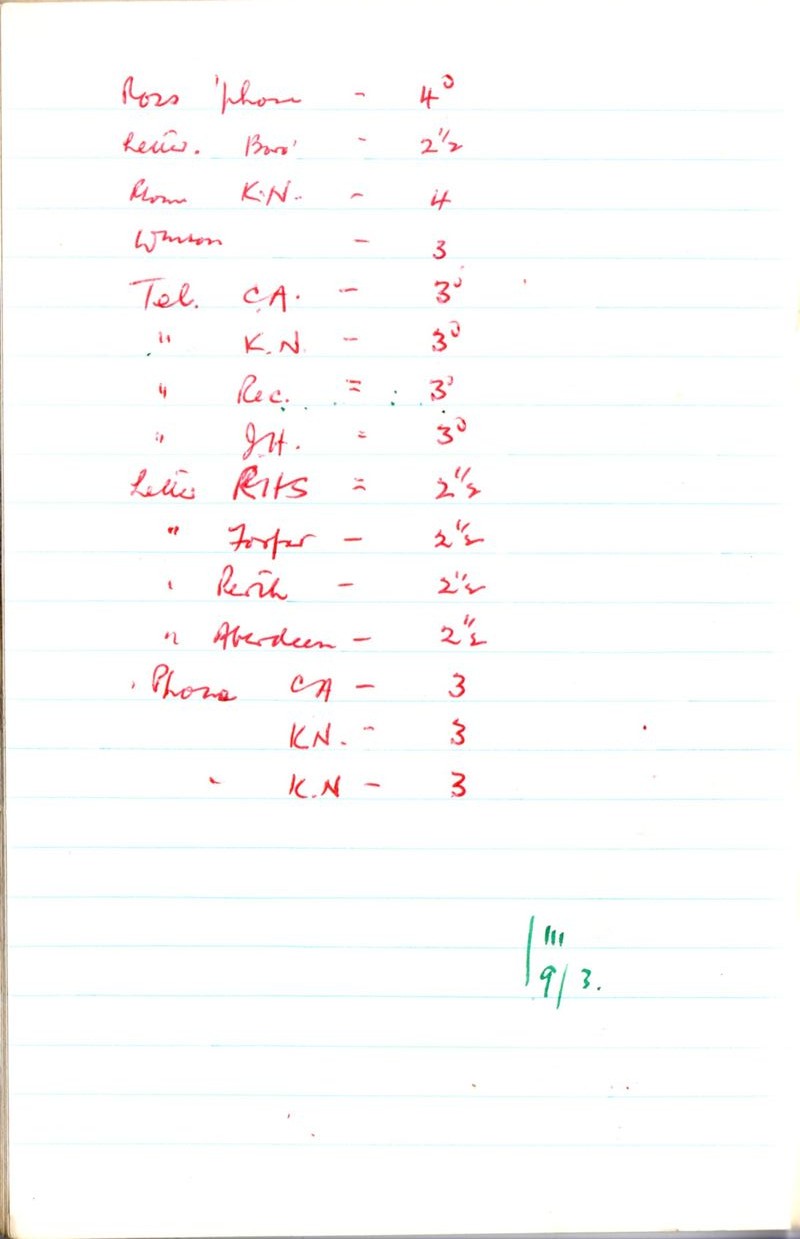 Ross 'phone - 4⁰
Letter. Boro' - 2½
Phone K.N. - 4
- 3
Tel. C.A. - 3⁰
" K.N. - 3⁰
" Rec. = 3⁰
" J.H. = 3⁰
Letter RHS = 2½
" Forfar - 2½
" Perth - 2½
" Aberdeen - 2½
Phone CA - 3
KN. - 3
" K.N - 3
111
9/3.